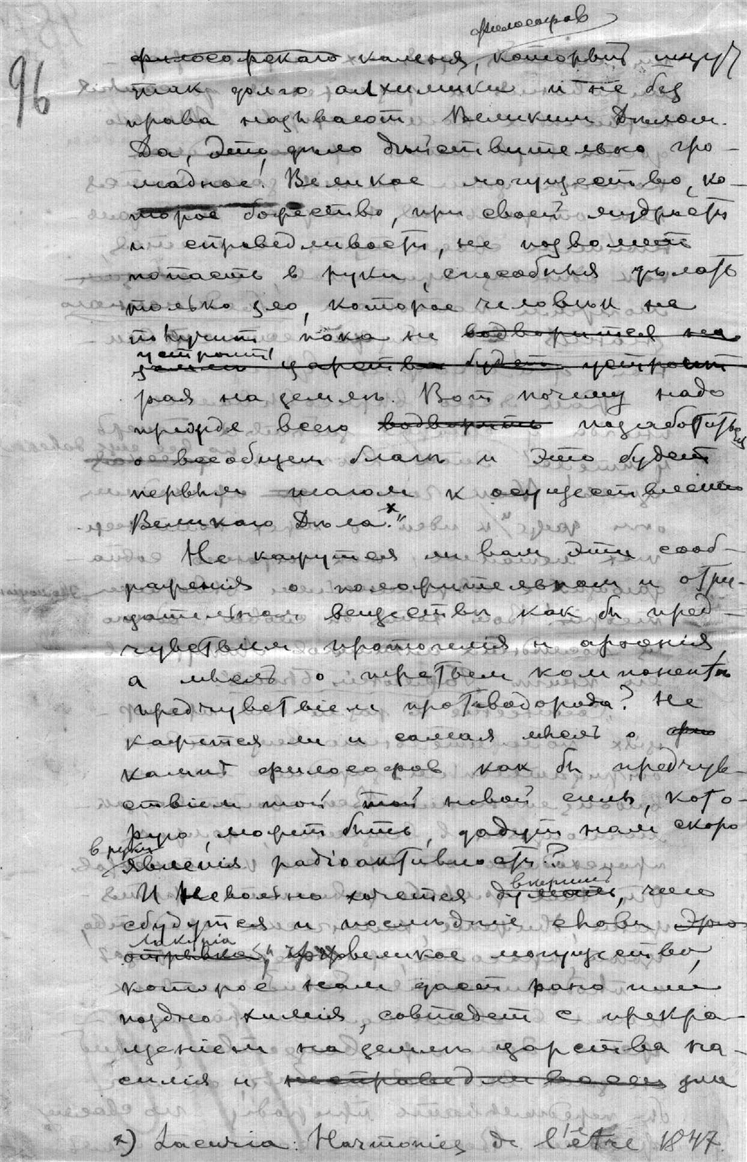 философов
96
философскаго камня, который ищут
так долго алхимики и не без
права называют Великим Дѣлом.
Да, это дѣло дѣйствительно гро-
мадное! Великое могущество, ко-
торое божество, при своей мудрости
и справедливости, не позволит
попасть в руки, способныя дѣлать
только зло, которое человѣк не
получит пока не водворится на
устроит
землѣ царства будет устроит
рая на землѣ. Вот почему надо
прежде всего водворить позаботиться
о всеобщем благѣ и это будет
первым шагом к осуществленію
Великаго Дѣла.*"
Не кажутся ли вам эти сооб-
раженія о положительном и отри-
цательном веществѣ как бы пред-
чувствіем протогелія и аронія,
а мысль о третьем компонентѣ
предчувствіем протоводорода? Не
кажется ли и самая мысль о фло
камнѣ философов как бы предчув-
ствіем той той новой силы, кото-
рую, может быть, дадут нам скоро
в руки
явленія радіоактивности?
И невольно хочется думать, что
вѣрить
сбудутся и послѣднія слова этого
Лакуріа
отрывка, что великое могущество,
которое нам даст рано или
поздно химія, совпадет с прекра-
щеніем на землѣ царства на-
силія и несправедливости зла
*) Lacuria: Harmonies de l'être 1847.